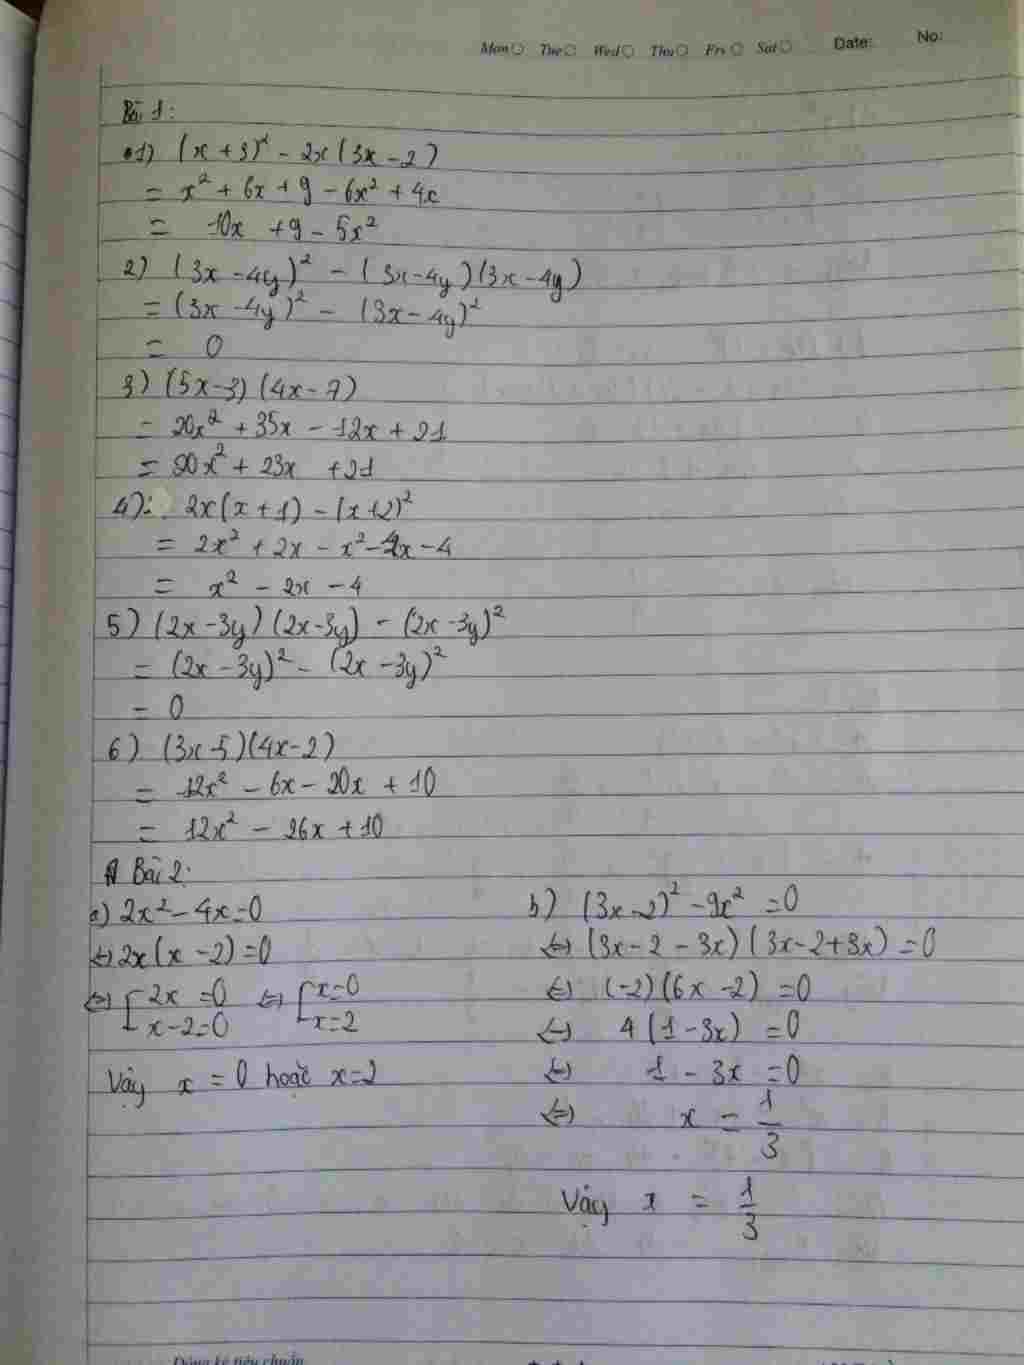 Mon Tue Wed Thu Fri Sat Date: No:
Bài 1:
1) (x + 3)² - 2x (3x - 2)
= x² + 6x + 9 - 6x² + 4x
= 10x + 9 - 5x²
2) (3x - 4y)² - (3x - 4y)(3x - 4y)
= (3x - 4y)² - (3x - 4y)²
= 0
3) (5x - 3) (4x - 7)
= 20x² + 35x - 12x + 21
= 20x² + 23x + 21
4): 2x(x + 1) - (x+2)²
= 2x² + 2x - x² - 4x - 4
= x² - 2x - 4
5) (2x - 3y) (2x - 3y) - (2x - 3y)²
= (2x - 3y)² - (2x - 3y)²
= 0
6) (3x - 5)(4x - 2)
= 12x² - 6x - 20x + 10
= 12x² - 26x + 10
Bài 2:
a) 2x² - 4x = 0
⇔ 2x(x - 2) = 0
⇔ [2x = 0 ⇔ [x = 0
x - 2 = 0 x = 2
Vậy x = 0 hoặc x = 2
b) (3x - 2)² - 9x² = 0
⇔ (3x - 2 - 3x) (3x - 2 + 3x) = 0
⇔ (-2)(6x - 2) = 0
⇔ 4(1 - 3x) = 0
⇔ 1 - 3x = 0
⇔ x = 1/3
Vậy x = 1/3